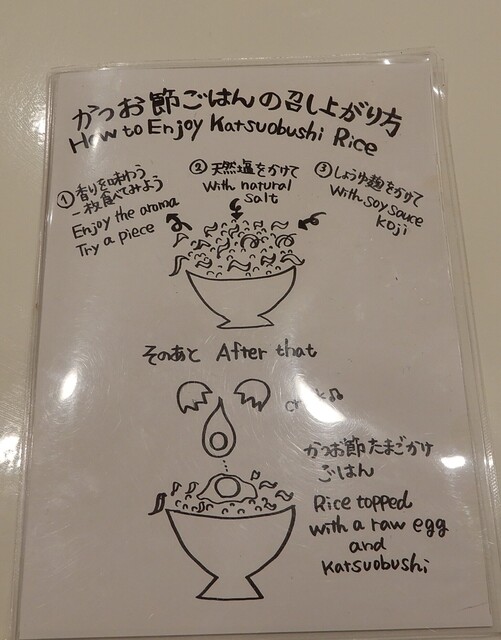 かつお節ごはんの召し上がり方
How to Enjoy Katsuobushi Rice
①香りを味わう
一枚食べてみよう
Enjoy the aroma
Try a piece
②天然塩をかけて
With natural
salt
③しょうゆ麹をかけて
With soy sauce
koji
そのあと After that
かつお節たまごかけ
ごはん
Rice topped
with a raw egg
and
Katsuobushi